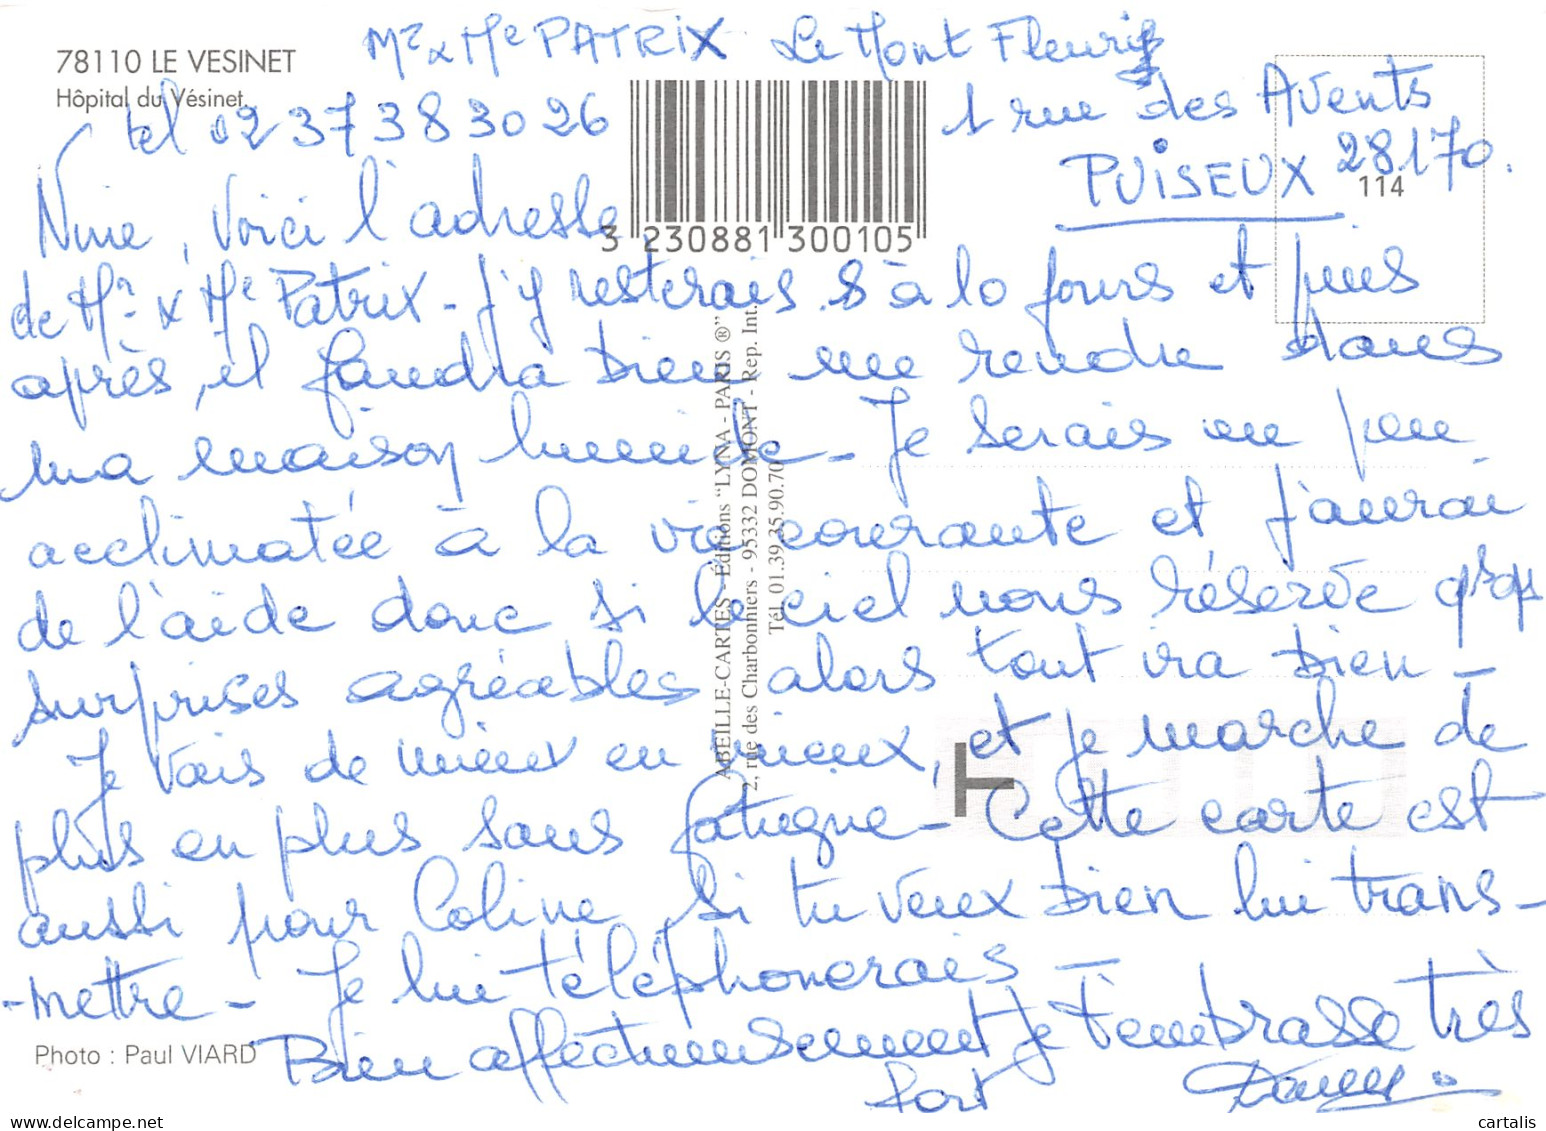 78110 LE VESINET
Hôpital du Vésinet.
Mr & Me PATRIX Le Mont Fleuri
tel 02 37 38 30 26
1 rue des Avents
PUISEUX 28.170.
114
3 230881 300105
Nine, Voici l'adresse
de Mr & Me Patrix - j'y resterais 8 à 10 jours et puis
après, il faudra bien me rendre dans
ma maison humide - Je serais un peu
acclimatée à la vie courante et j'aurai
de l'aide donc si le ciel nous réserve qqs
surprises agréables alors tout ira bien -
Je vais de mieux en mieux, et je marche de
plus en plus sans fatigue - Cette carte est
aussi pour Coline, si tu veux bien lui trans-
-mettre - Je lui téléphonerais -
Bien affectueusement je t'embrasse très
fort
Photo : Paul VIARD
ABEILLE-CARTES - Éditions "LYNA - PARIS ®"
2, rue des Charbonniers - 95332 DOMONT - Rep. Int.
Tél. 01.39.35.90.70
cartalis.com